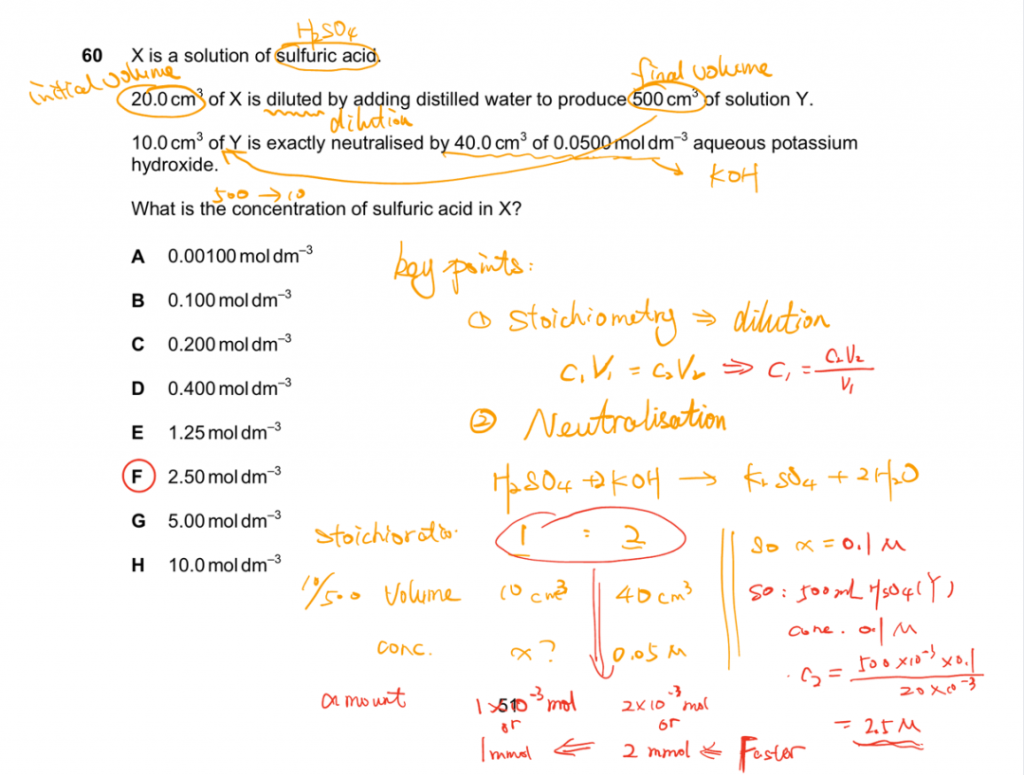 H₂SO₄
60 X is a solution of sulfuric acid.
initial volume
final volume
20.0 cm³ of X is diluted by adding distilled water to produce 500 cm³ of solution Y.
dilution
10.0 cm³ of Y is exactly neutralised by 40.0 cm³ of 0.0500 mol dm⁻³ aqueous potassium
hydroxide.
KOH
500 → 10
What is the concentration of sulfuric acid in X?
A 0.00100 mol dm⁻³
B 0.100 mol dm⁻³
C 0.200 mol dm⁻³
D 0.400 mol dm⁻³
E 1.25 mol dm⁻³
F 2.50 mol dm⁻³
G 5.00 mol dm⁻³
H 10.0 mol dm⁻³
key points:
① Stoichiometry ⇒ dilution
C₁V₁ = C₂V₂ ⇒ C₁ = C₂V₂ / V₁
② Neutralisation
H₂SO₄ + 2KOH → K₂SO₄ + 2H₂O
1 : 2
10/500 Volume 10 cm³ 40 cm³
conc. x? 0.05 M
amount 1×10⁻³ mol 2×10⁻³ mol
51
or or
1mmol ⇐ 2 mmol ⇐ Faster
so x = 0.1 M
so: 500 mL H₂SO₄ (Y)
conc. 0.1 M
C₂ = 500×10⁻³×0.1 / 20×10⁻³
= 2.5 M